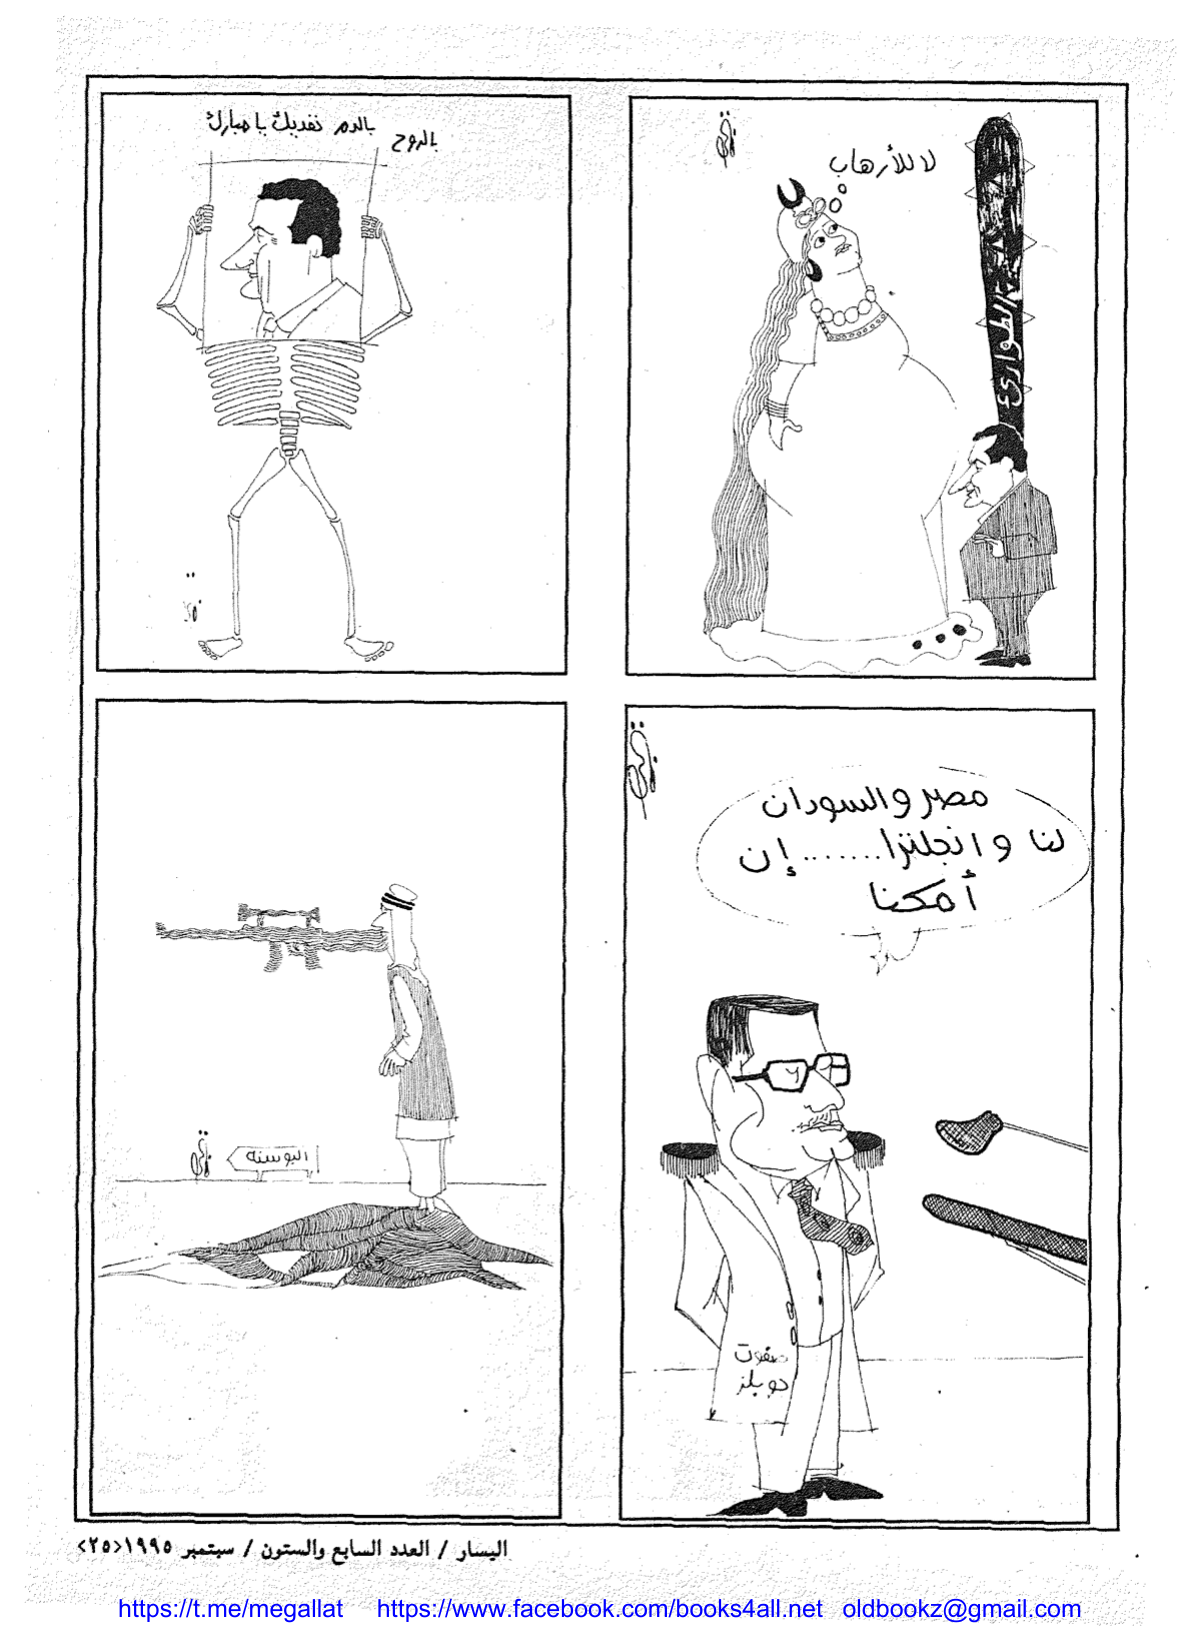 لا للأرهاب
الطوارئ
بالروح
بالدم نفديك يا مبارك
مصر والسودان
لنا وانجلترا.......إن
أمكنا
صفوت
جوبلز
البوسنه
اليسار / العدد السابع والستون / سبتمبر ١٩٩٥<٢٥>
https://t.me/megallat https://www.facebook.com/books4all.net oldbookz@gmail.com